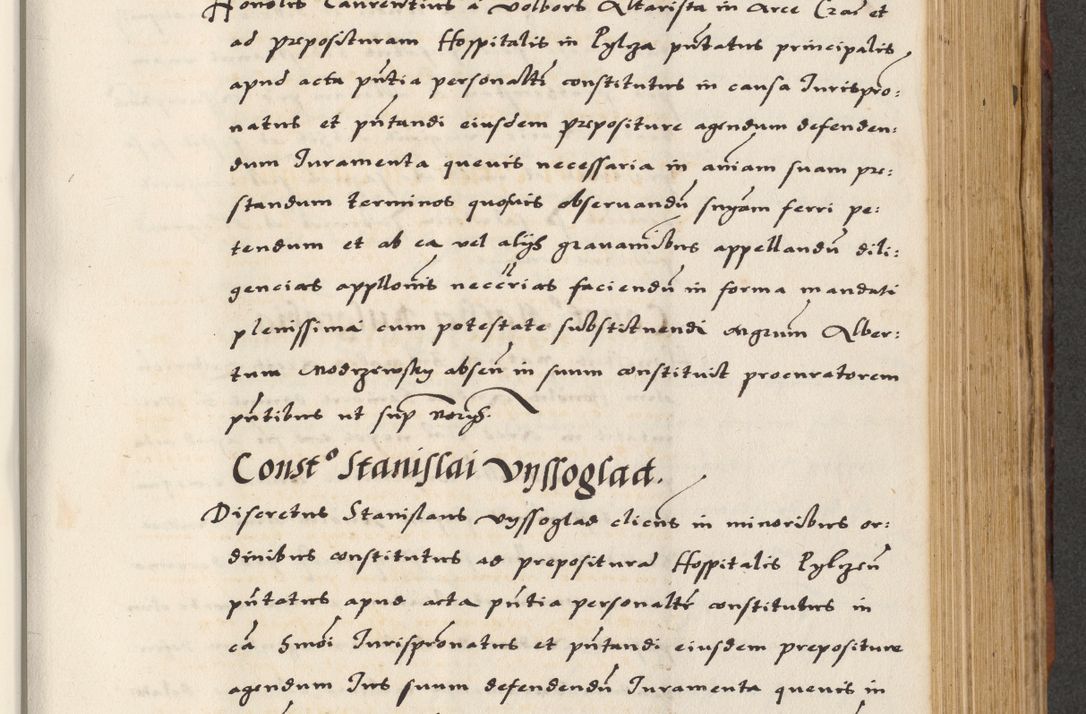 Honolis Laurentius a Volbors Altarista in Arce Crac̄ et
ad prepositуram Hospitalis in Pylcza pn̄tatus principalis
apud acta pn̄tia personalt̄r constitutus in causa Jurispro:
natus et pn̄tandi eiusdem prepositure agendum defenden:
dum Juramenta quevis necessaria in an̄iam suam pre:
standum terminos quosuis observandū sn̄iam ferri pe:
tendum et ab ea vel alijs grauaminibus appellandū dili:
gencias appllonis neccrias faciendū in forma mandati
plenissima cum potestate substituendi Mgrum Alber:
tum Modrzewsky absen̄ in suum constituit procuratorem
pn̄tibus ut sup̄
Const° Stanislai Vyssoglad.
Discretus Stanislaus Vyssoglad clicus in minoribus or:
dinibus constitutus ad preposituram Hospitalis Pylczen̄
pn̄tatus apud acta pn̄tia personalt̄r constitutus in
cā Jurispronatus et pn̄tandi eiusdem prepositure
agendum Jus suum defendendū Juramenta quevis in